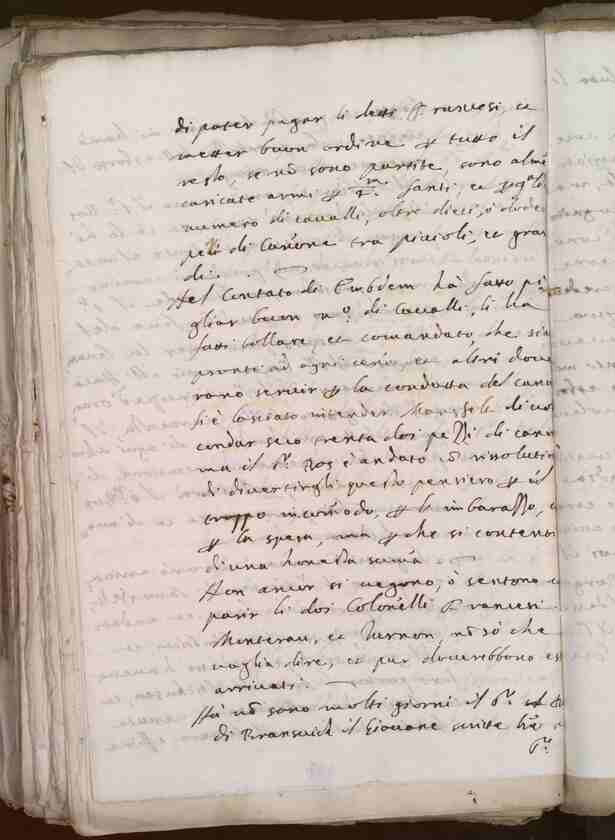 di poter pagar li detti francesi, et
metter buon ordine per tutto il
resto, se nõ sono partite, sono almẽ
caricate armi per fanti, et
numero di cavalli, oltre dieci, ò dode
di Canone tra piccioli, et gran
di.
Nel Contato di Embdem hà fatto pi
gliar buon nº. di Cavalli, li hà
fatti bollare, et comandato, che sian
pronti ad ogni ceno, et altri dove
rano servir per la condotta del cano
Si è lasciato intender Mansfelt di
condur seco trenta doi pezzi di cano
ma il Sr. Ros è andato cõ rissolution
di divertirgli questo pensiero per il
troppo incomodo, per l'imbarazzo,
per la spesa, ma per che si contenti
di una honesta summa
Non ancor si vegono, ò sentono
li doi Colonelli francesi
Monterau, et Turnon, nõ sò che
voglia dire, et pur doverebbono
arrivati.
Hà nõ sono molti giorni il Sr.
di Bransvich il Giovane
Sr.